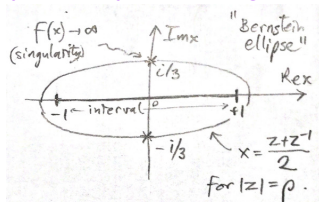 F(x) → ∞
(singularity)
Im x
"Bernstein
ellipse"
i/3
Re x
-1
interval
0
+1
-i/3
x = z+z⁻¹
2
for |z| = ρ.